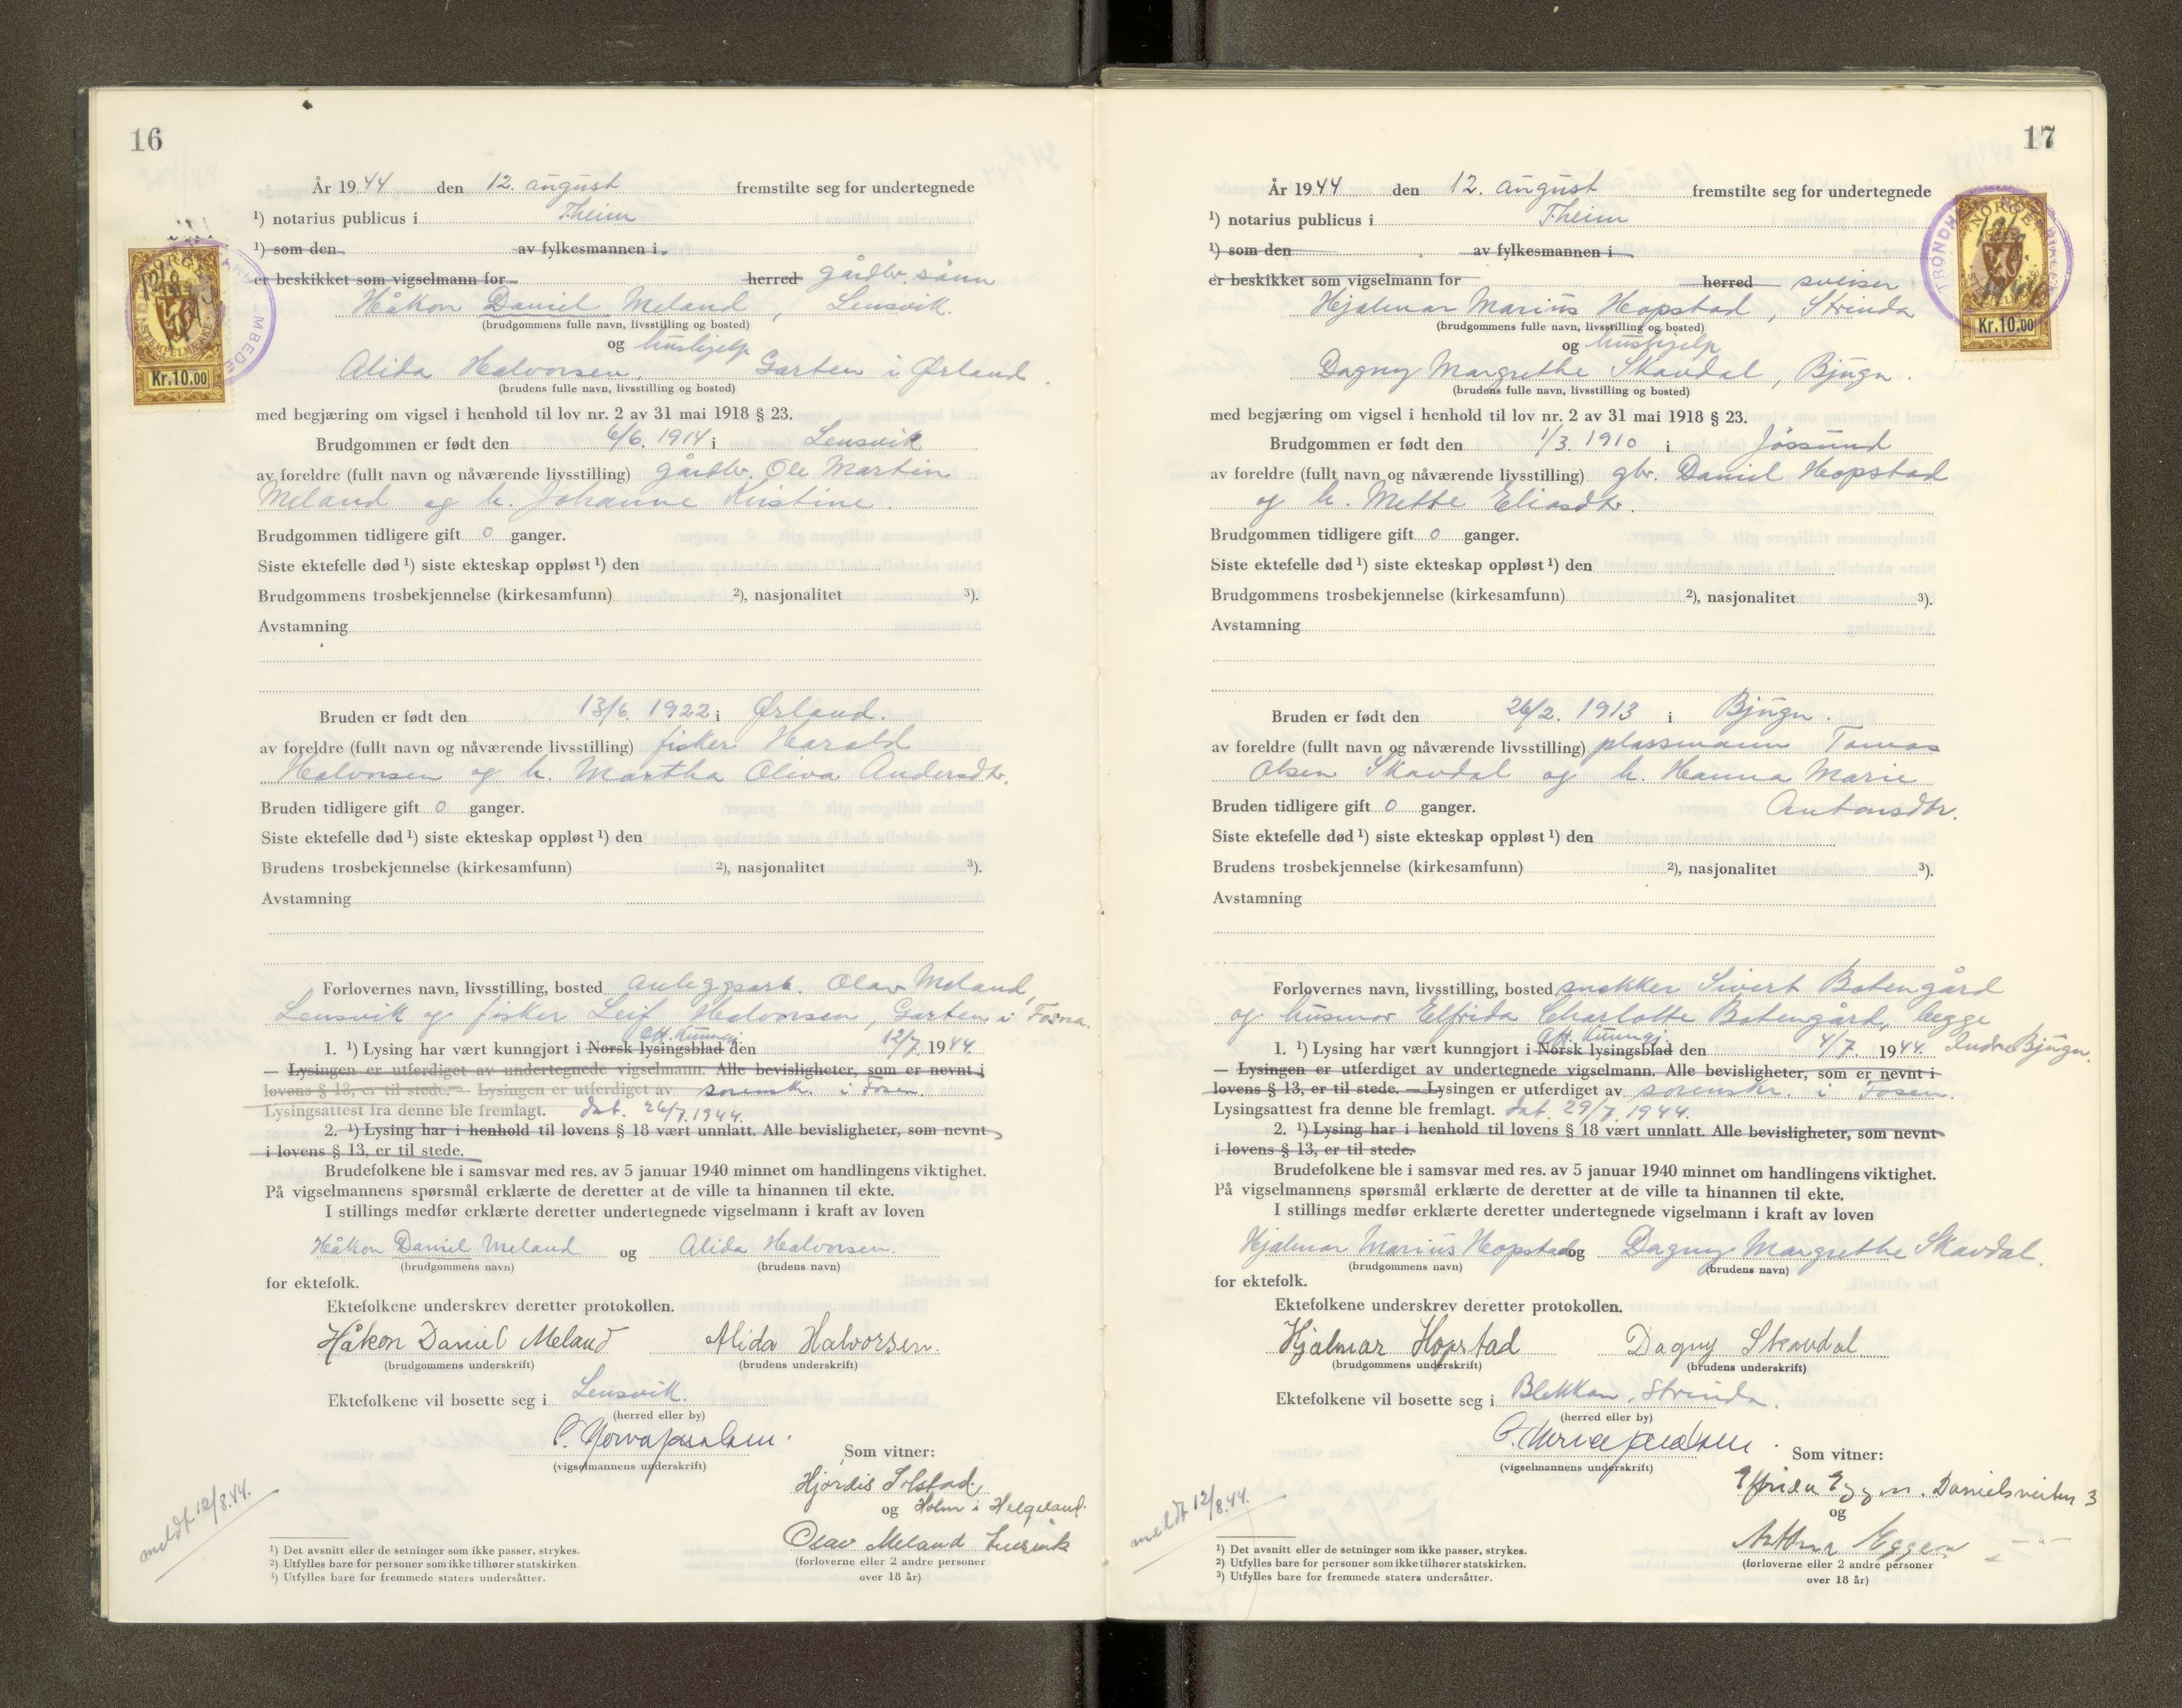 16
År 1944 den 12. august fremstilte seg for undertegnede
¹) notarius publicus i T.heim
¹) som den av fylkesmannen i
er beskikket som vigselmann for herred gårdbr. sønn
Håkon Daniel Meland, Lensvik.
(brudgommens fulle navn, livsstilling og bosted)
og hushjelp
Alida Halvorsen, Garten i Ørland.
(brudens fulle navn, livsstilling og bosted)
med begjæring om vigsel i henhold til lov nr. 2 av 31 mai 1918 § 23.
Brudgommen er født den 6/6. 1914 i Lensvik
av foreldre (fullt navn og nåværende livsstilling) gårdbr. Ole Martin
Meland og h. Johanne Kirstine.
Brudgommen tidligere gift 0 ganger.
Siste ektefelle død ¹) siste ekteskap oppløst ¹) den
Brudgommens trosbekjennelse (kirkesamfunn) ²), nasjonalitet ³).
Avstamning
Bruden er født den 13/6. 1922 i Ørland.
av foreldre (fullt navn og nåværende livsstilling) fisker Harald
Halvorsen og h. Martha Oliva Andersdtr.
Bruden tidligere gift 0 ganger.
Siste ektefelle død ¹) siste ekteskap oppløst ¹) den
Brudens trosbekjennelse (kirkesamfunn) ²), nasjonalitet ³).
Avstamning
Forlovernes navn, livsstilling, bosted anleggsarb. Olav Meland,
Lensvik og fisker Leif Halvorsen, Garten i Fosna.
Off. Kunngj.
1. ¹) Lysing har vært kunngjort i Norsk lysingsblad den 12/7. 1944.
— Lysingen er utferdiget av undertegnede vigselmann. Alle bevisligheter, som er nevnt i
lovens § 13, er til stede. — Lysingen er utferdiget av sorenskr. i Fosen.
Lysingsattest fra denne ble fremlagt. dat. 26/7. 1944.
2. ¹) Lysing har i henhold til lovens § 18 vært unnlatt. Alle bevisligheter, som nevnt
i lovens § 13, er til stede.
Brudefolkene ble i samsvar med res. av 5 januar 1940 minnet om handlingens viktighet.
På vigselmannens spørsmål erklærte de deretter at de ville ta hinannen til ekte.
I stillings medfør erklærte deretter undertegnede vigselmann i kraft av loven
Håkon Daniel Meland og Alida Halvorsen.
(brudgommens navn) (brudens navn)
for ektefolk.
Ektefolkene underskrev deretter protokollen.
Håkon Daniel Meland Alida Halvorsen.
(brudgommens underskrift) (brudens underskrift)
Ektefolkene vil bosette seg i Lensvik.
(herred eller by)
(vigselmannens underskrift)
Som vitner:
Hjørdis Solstad.
og Holm i Helgeland.
Olav Meland Lensvik
(forloverne eller 2 andre personer
over 18 år)
meldt 12/8.44.
¹) Det avsnitt eller de setninger som ikke passer, strykes.
²) Utfylles bare for personer som ikke tilhører statskirken.
³) Utfylles bare for fremmede staters undersåtter.
NORGE
12/8
Kr.10.00
17
År 1944 den 12. august fremstilte seg for undertegnede
¹) notarius publicus i T.heim
¹) som den av fylkesmannen i
er beskikket som vigselmann for herred sveiser
Hjalmar Marius Hopstad, Strinda
(brudgommens fulle navn, livsstilling og bosted)
og hushjelp
Dagny Margrethe Skavdal, Bjugn.
(brudens fulle navn, livsstilling og bosted)
med begjæring om vigsel i henhold til lov nr. 2 av 31 mai 1918 § 23.
Brudgommen er født den 1/3. 1910 i Jøssund
av foreldre (fullt navn og nåværende livsstilling) gbr. Daniel Hopstad
og h. Mette Eliasdtr.
Brudgommen tidligere gift 0 ganger.
Siste ektefelle død ¹) siste ekteskap oppløst ¹) den
Brudgommens trosbekjennelse (kirkesamfunn) ²), nasjonalitet ³).
Avstamning
Bruden er født den 26/2. 1913 i Bjugn.
av foreldre (fullt navn og nåværende livsstilling) plassmann Tomas
Olsen Skavdal og h. Hanna Marie
Bruden tidligere gift 0 ganger. Antonsdtr.
Siste ektefelle død ¹) siste ekteskap oppløst ¹) den
Brudens trosbekjennelse (kirkesamfunn) ²), nasjonalitet ³).
Avstamning
Forlovernes navn, livsstilling, bosted snekker Sivert Botengård
og husmor Elfrida Charlotte Botengård, begge
Off. Kunngj.
1. ¹) Lysing har vært kunngjort i Norsk lysingsblad den 4/7. 1944. Indre Bjugn.
— Lysingen er utferdiget av undertegnede vigselmann. Alle bevisligheter, som er nevnt i
lovens § 13, er til stede. — Lysingen er utferdiget av sorenskr. i Fosen.
Lysingsattest fra denne ble fremlagt. dat. 29/7. 1944.
2. ¹) Lysing har i henhold til lovens § 18 vært unnlatt. Alle bevisligheter, som nevnt
i lovens § 13, er til stede.
Brudefolkene ble i samsvar med res. av 5 januar 1940 minnet om handlingens viktighet.
På vigselmannens spørsmål erklærte de deretter at de ville ta hinannen til ekte.
I stillings medfør erklærte deretter undertegnede vigselmann i kraft av loven
Hjalmar Marius Hopstad og Dagny Margrethe Skavdal.
(brudgommens navn) (brudens navn)
for ektefolk.
Ektefolkene underskrev deretter protokollen.
Hjalmar Hopstad Dagny Skavdal
(brudgommens underskrift) (brudens underskrift)
Ektefolkene vil bosette seg i Blekkan, Strinda.
(herred eller by)
(vigselmannens underskrift)
Som vitner:
Elfrida Eggen. Danielsveiten 3
og
Arthur Eggen
(forloverne eller 2 andre personer
over 18 år)
meldt 12/8.44.
¹) Det avsnitt eller de setninger som ikke passer, strykes.
²) Utfylles bare for personer som ikke tilhører statskirken.
³) Utfylles bare for fremmede staters undersåtter.
NORGE
Kr.10.00